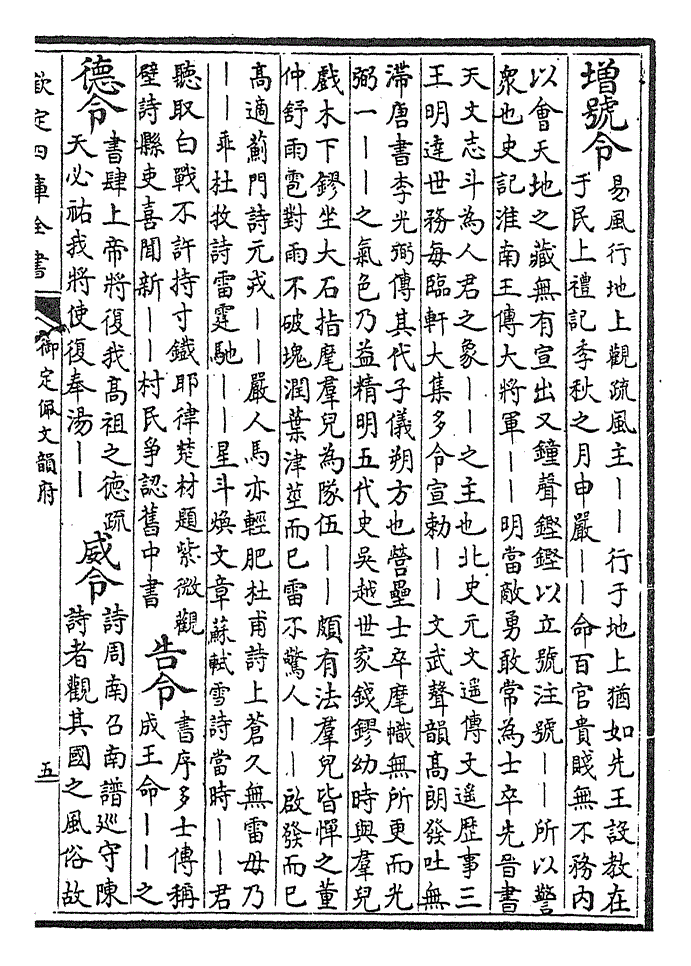 增號令
易風行地上觀疏風主丨丨行于地上猶如先王設教在
于民上禮記季秋之月申嚴丨丨命百官貴賤無不務内
以會天地之藏無有宣出又鐘聲鏗鏗以立號注號丨丨所以警
衆也史記淮南王傳大將軍丨丨明當敵勇敢常為士卒先晉書
天文志斗為人君之象丨丨之主也北史元文遥傳文遥歴事三
王明逹世務每臨軒大集多令宣勅丨丨文武聲韻髙朗發吐無
滯唐書李光弼傳其代子儀朔方也營壘士卒麾幟無所更而光
弼一丨丨之氣色乃益精明五代史吳越世家錢鏐幼時與羣兒
戲木下鏐坐大石指麾羣兒為隊伍丨丨頗有法羣兒皆憚之董
仲舒雨雹對雨不破塊潤葉津莖而已雷不驚人丨丨啟發而已
髙適薊門詩元戎丨丨嚴人馬亦輕肥杜甫詩上蒼久無雷毋乃
丨丨乖杜牧詩雷霆馳丨丨星斗煥文章蘇軾雪詩當時丨丨君
聽取白戰不許持寸鐵耶律楚材題紫微觀
壁詩縣吏喜聞新丨丨村民爭認舊中書
告令
書序多士傳稱
成王命丨丨之
德令
書肆上帝將復我髙祖之德疏
天必祐我將使復奉湯丨丨
威令
詩周南召南譜巡守陳
詩者觀其國之風俗故
欽定四庫全書
御定佩文韻府
五